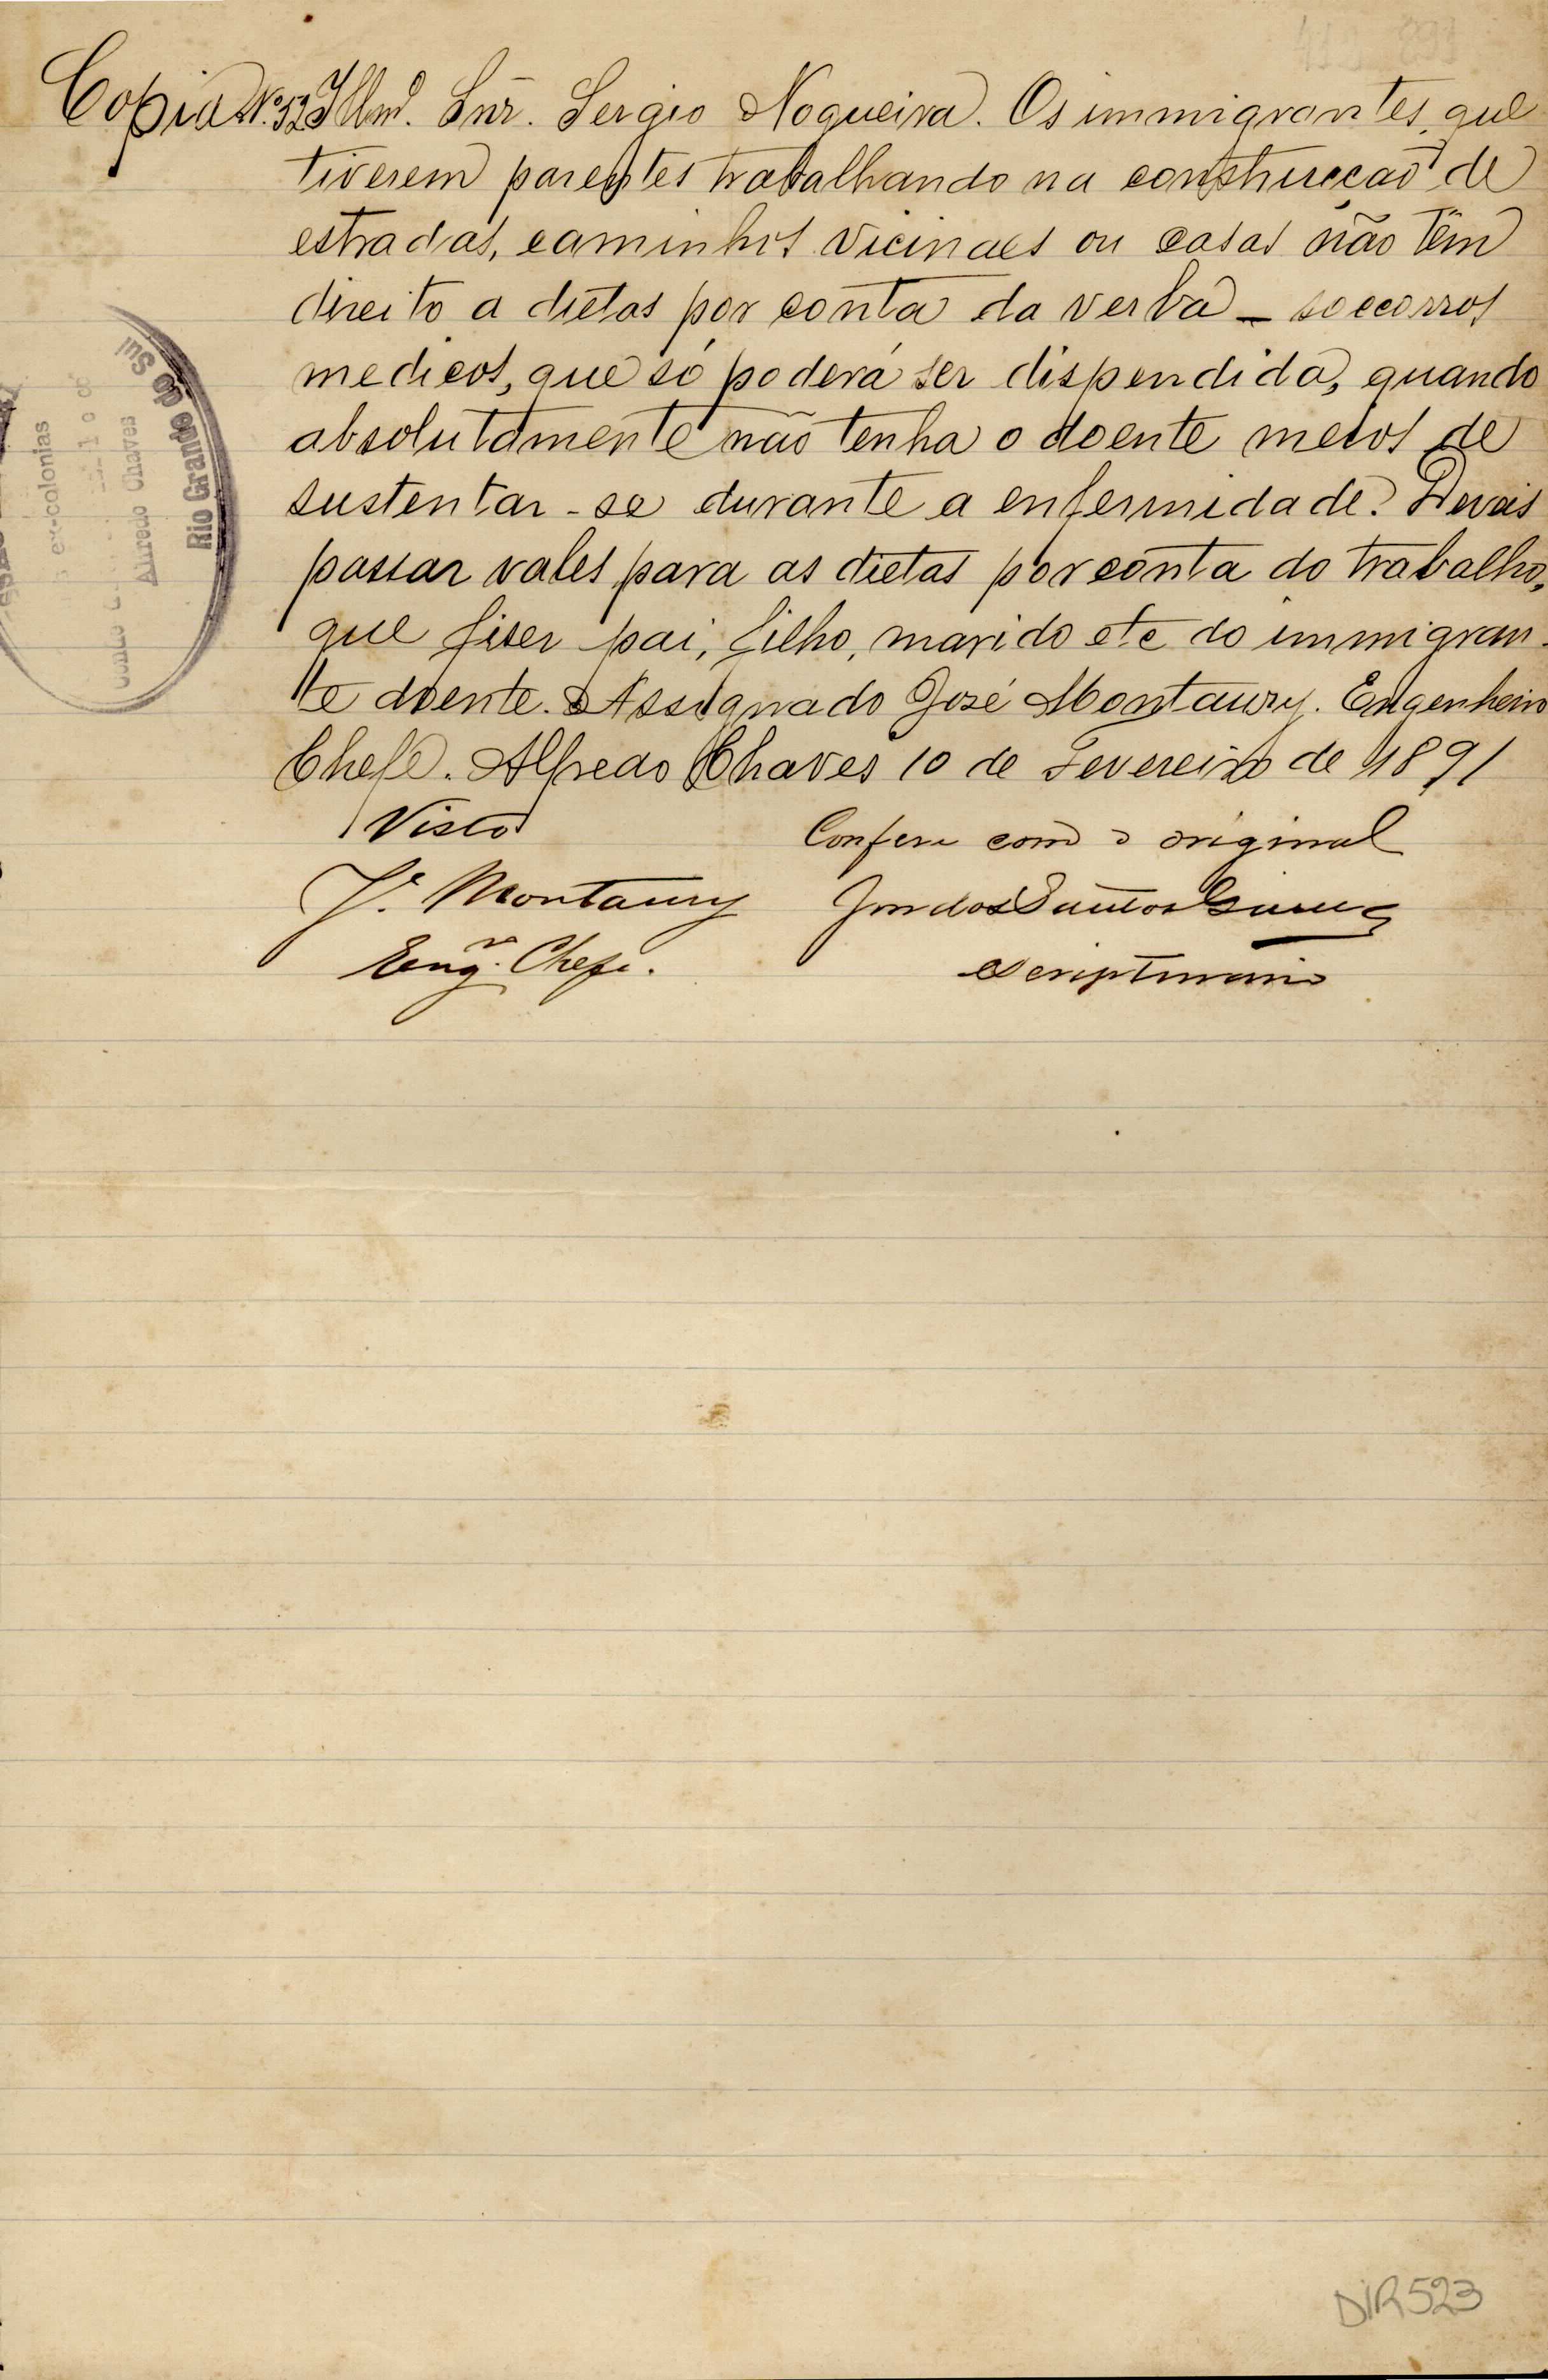 Copia Nº.52 Illmº. Snr. Sergio Nogueira. Os immigrantes, que
tiverem parentes trabalhando na construcção de
estradas, caminhos vicinaes ou casas não têm
direito a dietas por conta da verba - soccorros
medicos, que só poderá ser dispendida, quando
absolutamente não tenha o doente meios de
sustentar-se durante a enfermidade. Deveis
passar vales para as dietas por conta do trabalho,
que fizer pai, filho, marido etc do immigran-
te doente. Assignado José Montaury. Engenheiro
Chefe. Alfredo Chaves 10 de Fevereiro de 1891
Visto
Confere com o original
J. Montaury
dos Santos
Engr. Chefe.
escripturario
ex-colonias
Alfredo Chaves
Rio Grande do Sul
DIR523